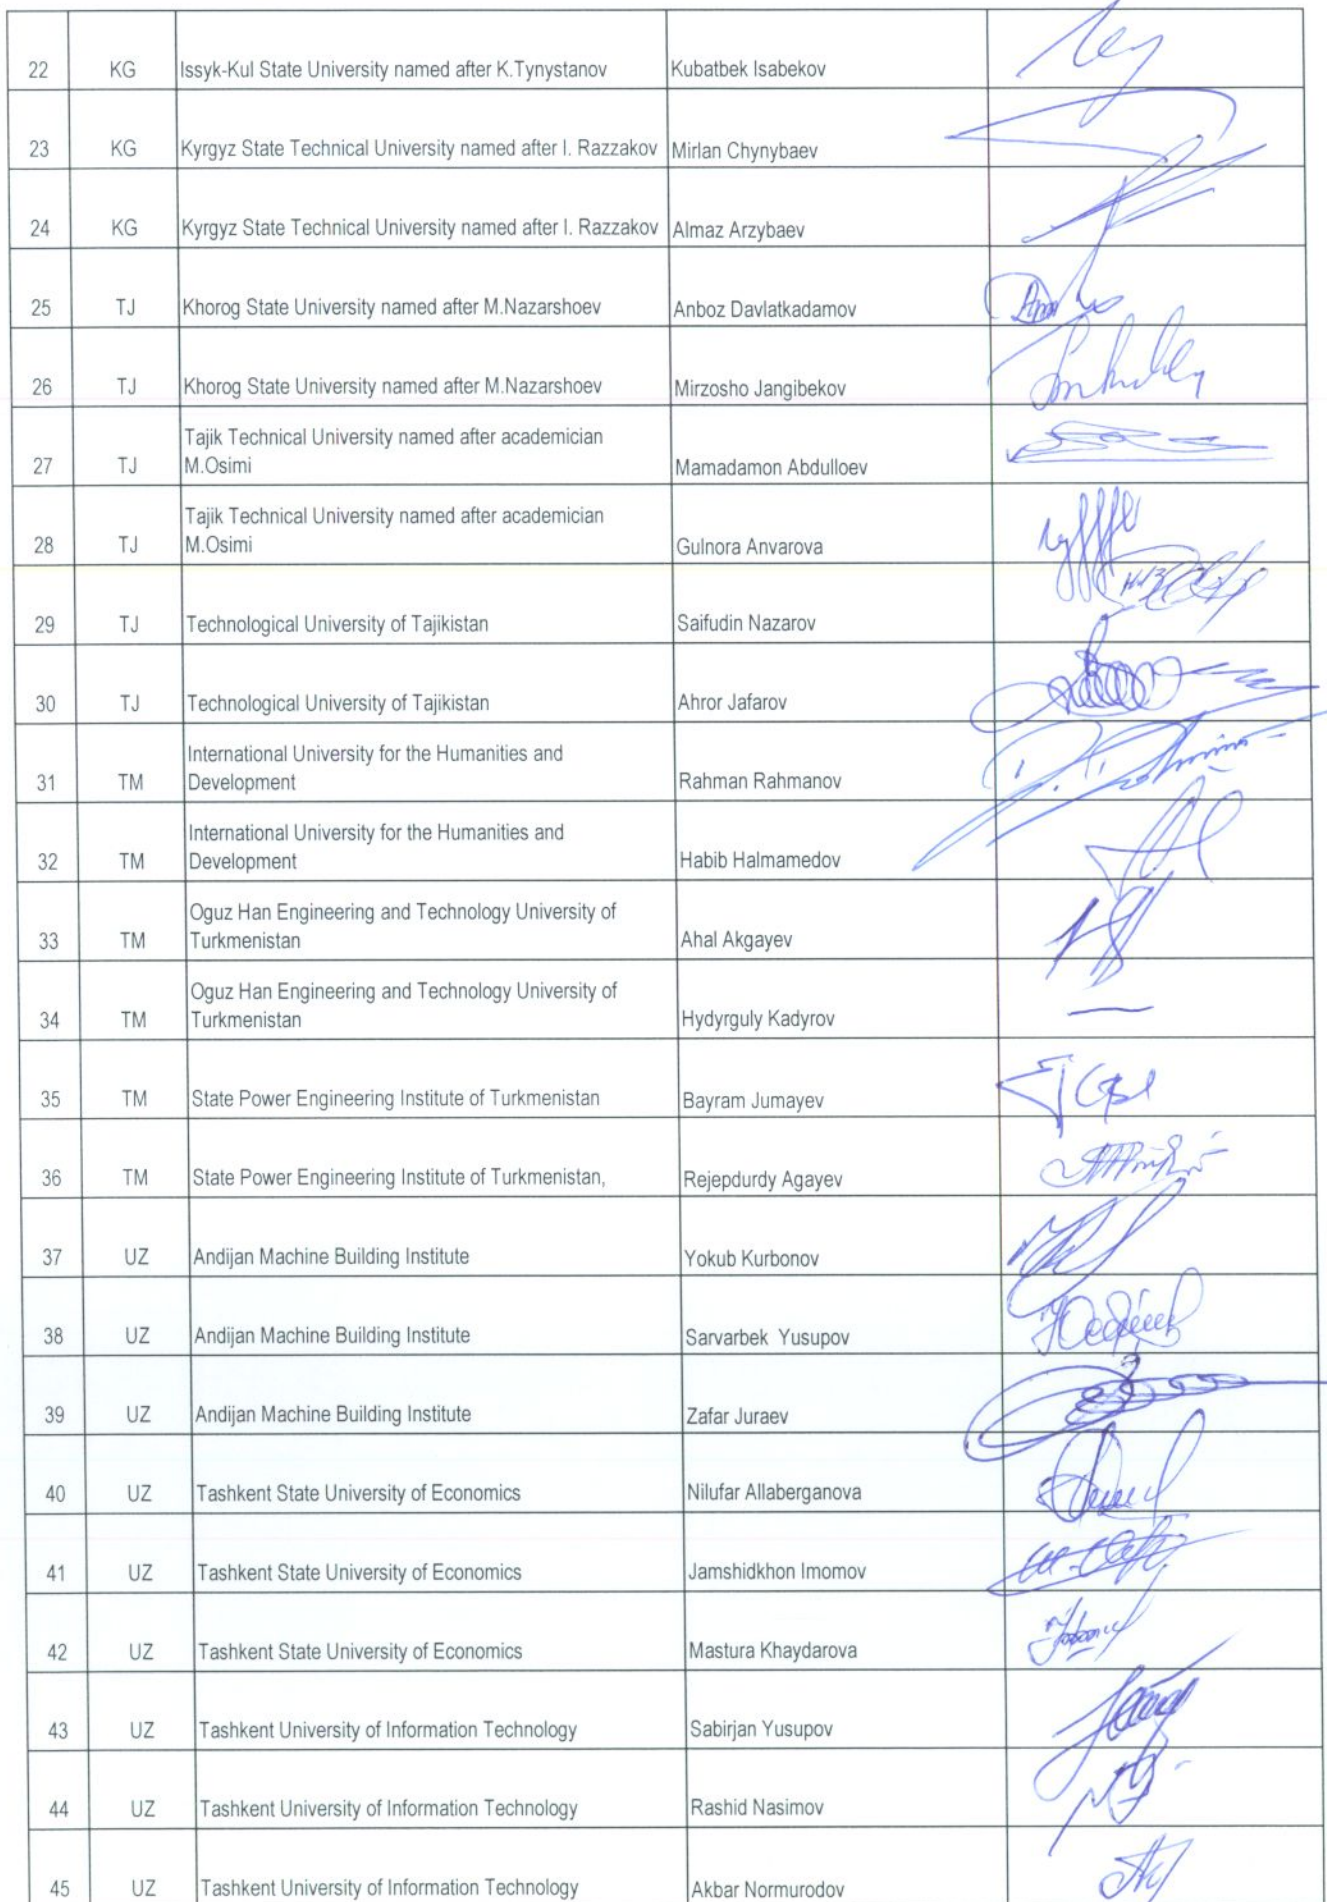 22 KG Issyk-Kul State University named after K.Tynystanov Kubatbek Isabekov
23 KG Kyrgyz State Technical University named after I. Razzakov Mirlan Chynybaev
24 KG Kyrgyz State Technical University named after I. Razzakov Almaz Arzybaev
25 TJ Khorog State University named after M.Nazarshoev Anboz Davlatkadamov
26 TJ Khorog State University named after M.Nazarshoev Mirzosho Jangibekov
Tajik Technical University named after academician
27 TJ M.Osimi Mamadamon Abdulloev
Tajik Technical University named after academician
28 TJ M.Osimi Gulnora Anvarova
29 TJ Technological University of Tajikistan Saifudin Nazarov
30 TJ Technological University of Tajikistan Ahror Jafarov
International University for the Humanities and
31 TM Development Rahman Rahmanov
International University for the Humanities and
32 TM Development Habib Halmamedov
Oguz Han Engineering and Technology University of
33 TM Turkmenistan Ahal Akgayev
Oguz Han Engineering and Technology University of
34 TM Turkmenistan Hydyrguly Kadyrov
35 TM State Power Engineering Institute of Turkmenistan Bayram Jumayev
36 TM State Power Engineering Institute of Turkmenistan, Rejepdurdy Agayev
37 UZ Andijan Machine Building Institute Yokub Kurbonov
38 UZ Andijan Machine Building Institute Sarvarbek Yusupov
39 UZ Andijan Machine Building Institute Zafar Juraev
40 UZ Tashkent State University of Economics Nilufar Allaberganova
41 UZ Tashkent State University of Economics Jamshidkhon Imomov
42 UZ Tashkent State University of Economics Mastura Khaydarova
43 UZ Tashkent University of Information Technology Sabirjan Yusupov
44 UZ Tashkent University of Information Technology Rashid Nasimov
45 UZ Tashkent University of Information Technology Akbar Normurodov